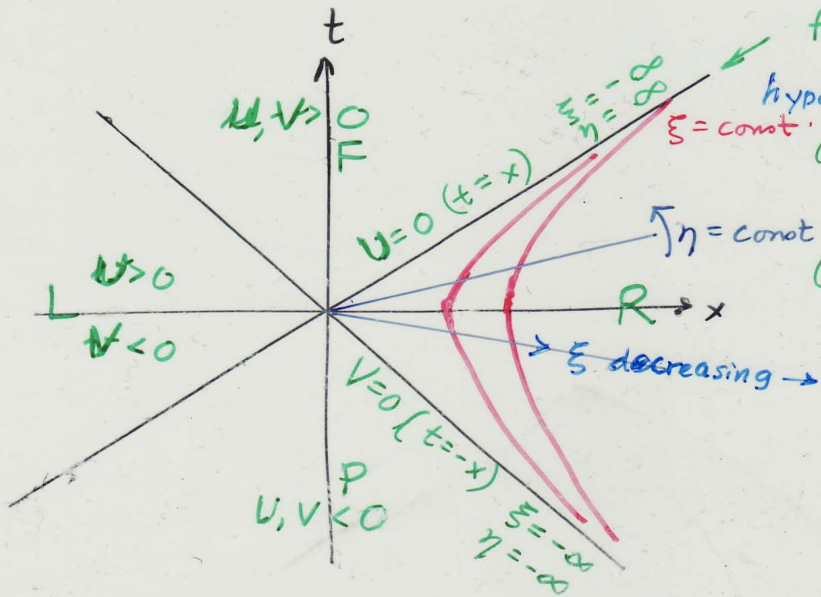 t
U, V > 0
F
ξ = -∞
η = ∞
hypo
ξ = const.
U=0 (t=x)
η = const
U>0
L
V<0
R
x
ξ decreasing →
V=0 (t=-x)
ξ=-∞
η=-∞
P
U, V<0